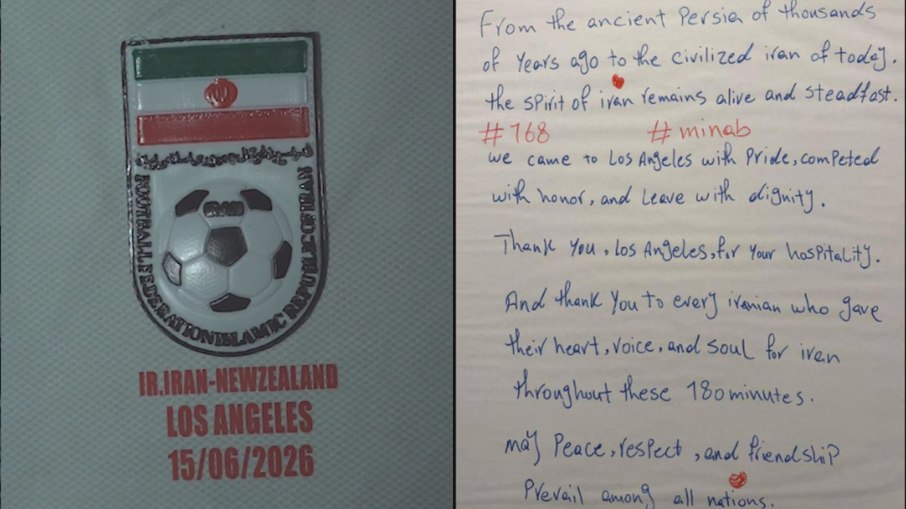 FOOTBALL FEDERATION ISLAMIC REPUBLIC OF IRAN
IRAN
IR.IRAN-NEWZEALAND
LOS ANGELES
15/06/2026
From the ancient Persia of thousands
of years ago to the civilized iran of today.
the spirit of iran remains alive and steadfast.
#168 #minab
we came to Los Angeles with Pride, competed
with honor, and Leave with dignity.
Thank you, Los Angeles, for your hospitality.
And thank you to every iranian who gave
their heart, voice, and soul for iran
throughout these 180 minutes.
may Peace, respect, and friendship
Prevail among all nations.